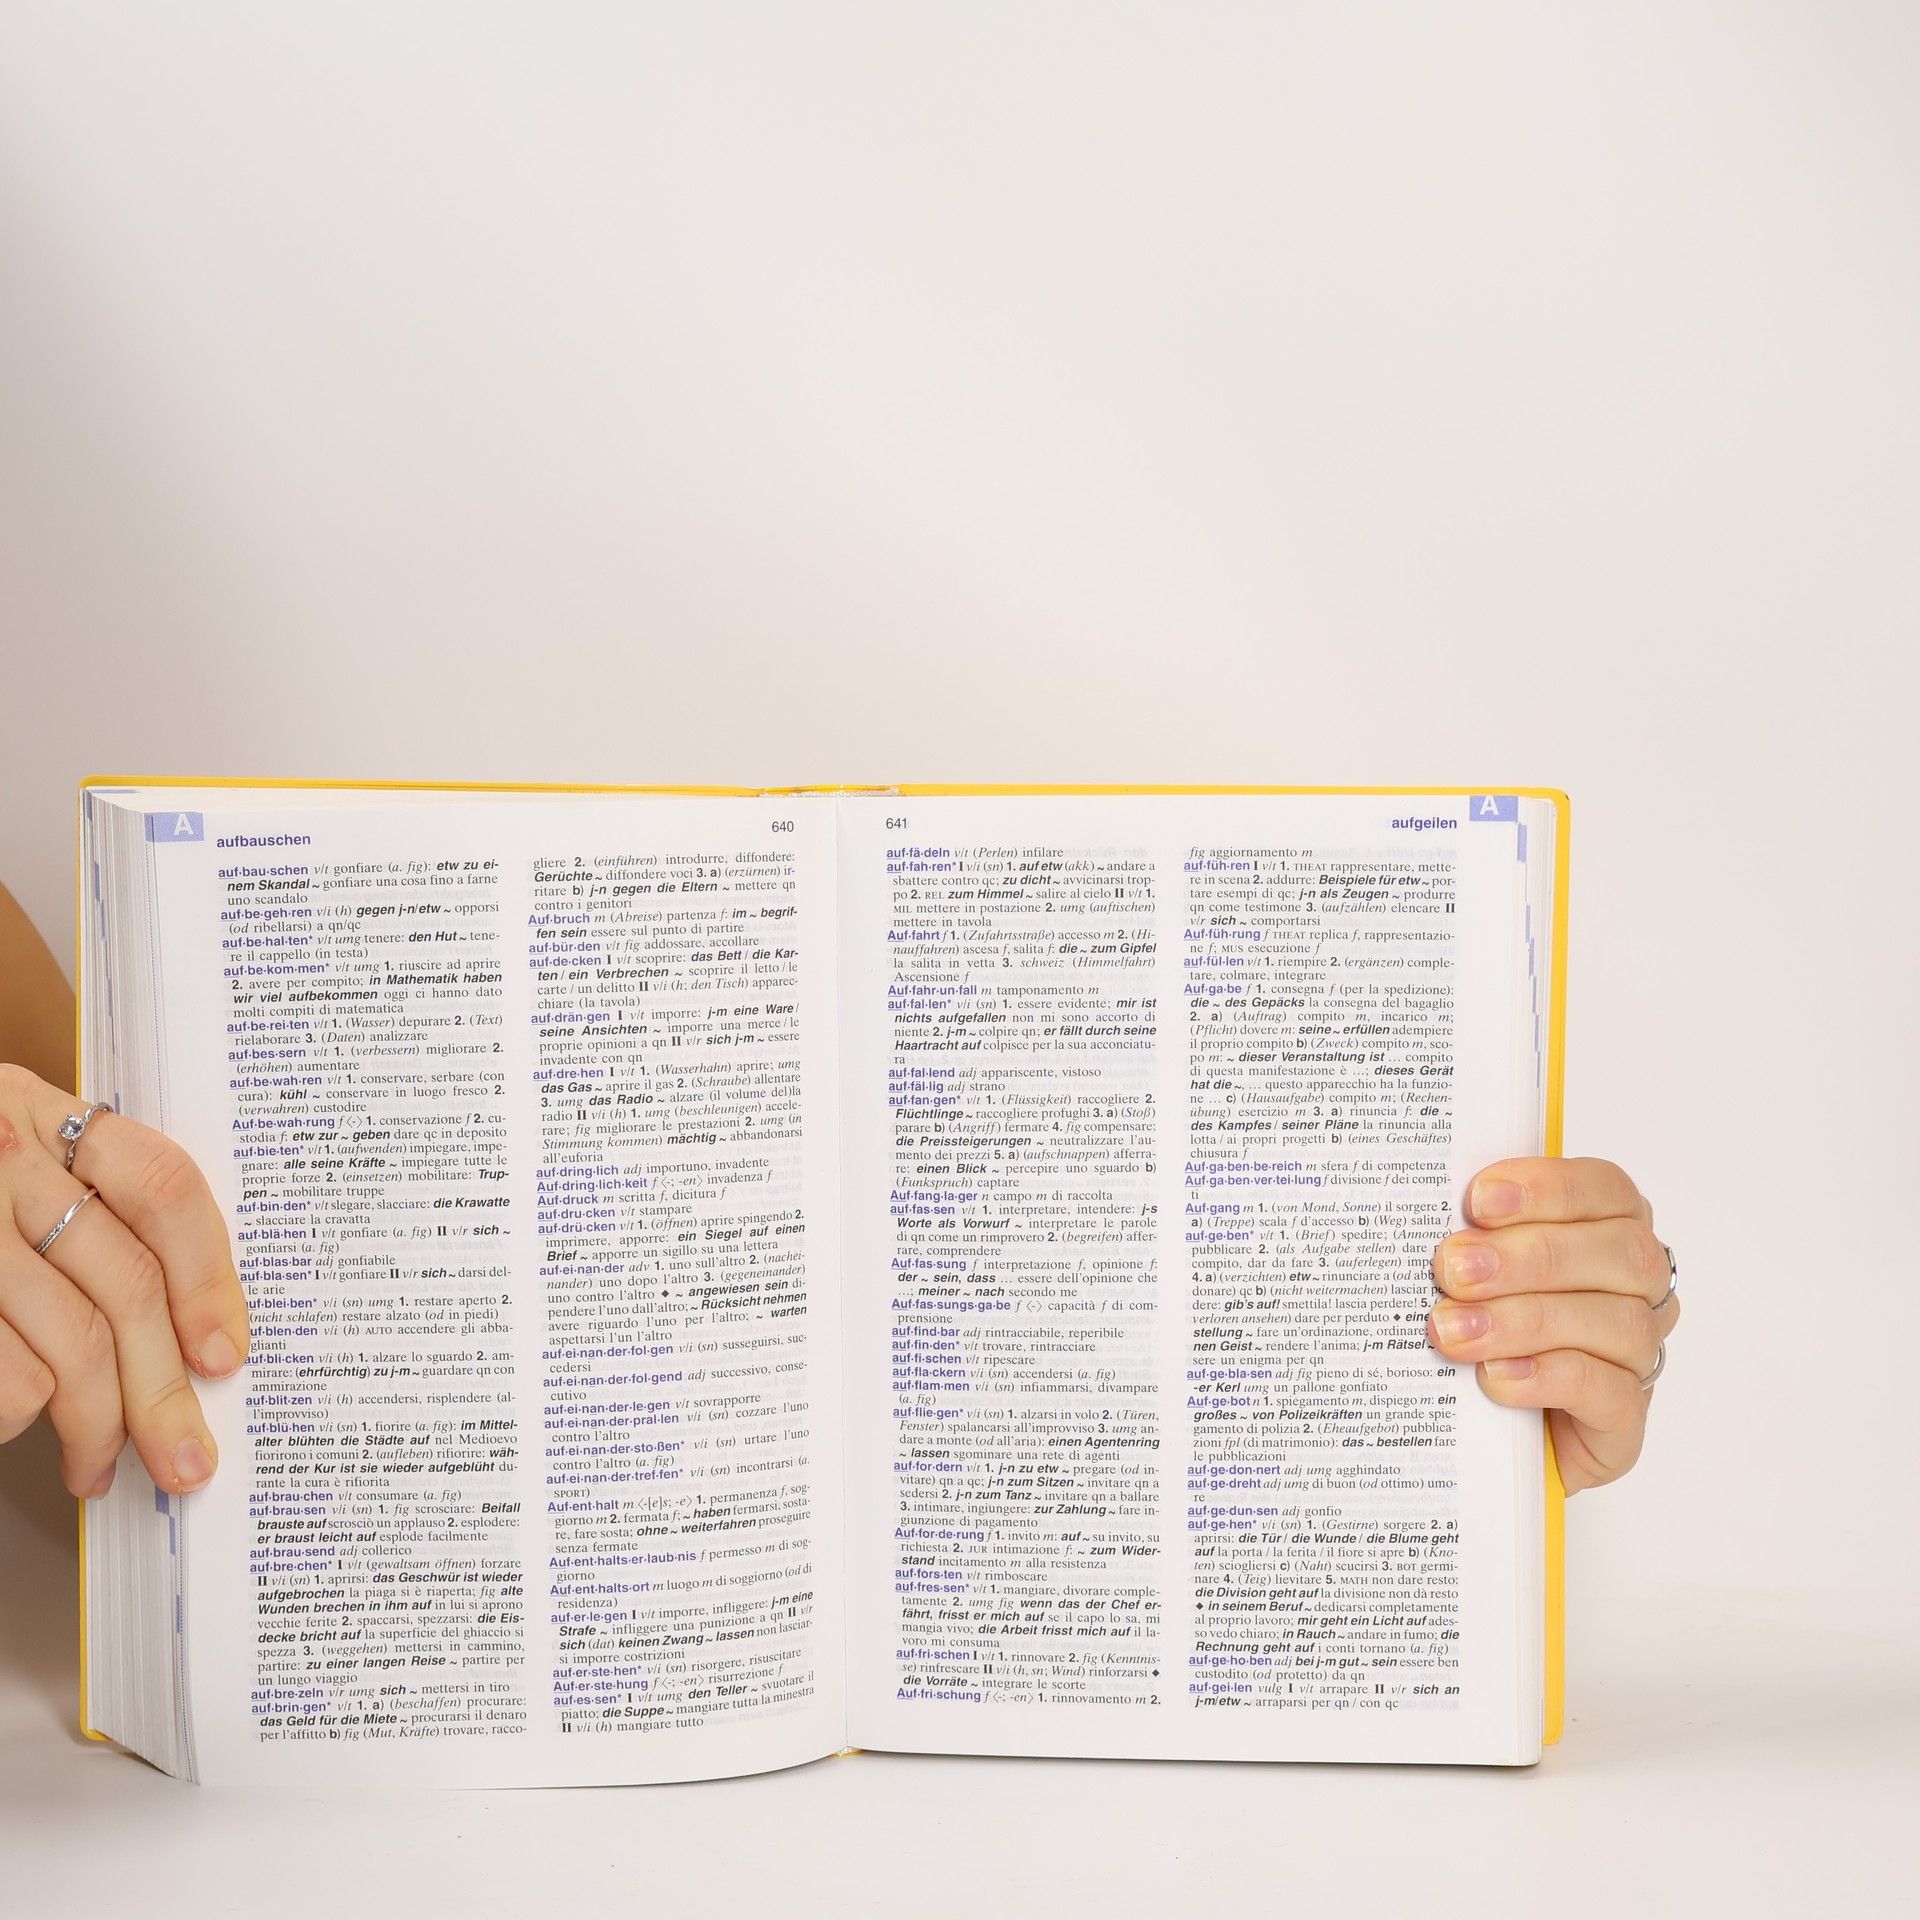 A
aufbauschen
640
auf·bau·schen v/t gonfiare (a. fig): etw zu ei-
nem Skandal ~ gonfiare una cosa fino a farne
uno scandalo
auf·be·geh·ren v/i (h) gegen j-n/etw ~ opporsi
(od ribellarsi) a qn/qc
auf·be·hal·ten* v/t umg tenere: den Hut ~ tene-
re il cappello (in testa)
auf·be·kom·men* v/t umg 1. riuscire ad aprire
2. avere per compito; in Mathematik haben
wir viel aufbekommen oggi ci hanno dato
molti compiti di matematica
auf·be·rei·ten v/t 1. (Wasser) depurare 2. (Text)
rielaborare 3. (Daten) analizzare
auf·bes·sern v/t 1. (verbessern) migliorare 2.
(erhöhen) aumentare
auf·be·wah·ren v/t 1. conservare, serbare (con
cura): kühl ~ conservare in luogo fresco 2.
(verwahren) custodire
Auf·be·wah·rung f ⟨-⟩ 1. conservazione f 2. cu-
stodia f: etw zur ~ geben dare qc in deposito
auf·bie·ten* v/t 1. (aufwenden) impiegare, impe-
gnare: alle seine Kräfte ~ impiegare tutte le
proprie forze 2. (einsetzen) mobilitare: Trup-
pen ~ mobilitare truppe
auf·bin·den* v/t slegare, slacciare: die Krawatte
~ slacciare la cravatta
auf·blä·hen I v/t gonfiare (a. fig) II v/r sich ~
gonfiarsi (a. fig)
auf·blas·bar adj gonfiabile
auf·bla·sen* I v/t gonfiare II v/r sich ~ darsi del-
le arie
uf·blei·ben* v/i (sn) umg 1. restare aperto 2.
(nicht schlafen) restare alzato (od in piedi)
uf·blen·den v/i (h) AUTO accendere gli abba-
glianti
auf·bli·cken v/i (h) 1. alzare lo sguardo 2. am-
mirare: (ehrfürchtig) zu j-m ~ guardare qn con
ammirazione
auf·blit·zen v/i (h) accendersi, risplendere (al-
l'improvviso)
auf·blü·hen v/i (sn) 1. fiorire (a. fig): im Mittel-
alter blühten die Städte auf nel Medioevo
fiorirono i comuni 2. (aufleben) rifiorire: wäh-
rend der Kur ist sie wieder aufgeblüht du-
rante la cura è rifiorita
auf·brau·chen v/t consumare (a. fig)
auf·brau·sen v/i (sn) 1. fig scrosciare: Beifall
brauste auf scrosciò un applauso 2. esplodere:
er braust leicht auf esplode facilmente
auf·brau·send adj collerico
auf·bre·chen* I v/t (gewaltsam öffnen) forzare
II v/i (sn) 1. aprirsi: das Geschwür ist wieder
aufgebrochen la piaga si è riaperta; fig alte
Wunden brechen in ihm auf in lui si aprono
vecchie ferite 2. spaccarsi, spezzarsi: die Eis-
decke bricht auf la superficie del ghiaccio si
spezza 3. (weggehen) mettersi in cammino,
partire: zu einer langen Reise ~ partire per
un lungo viaggio
auf·bre·zeln v/r umg sich ~ mettersi in tiro
auf·brin·gen* v/t 1. a) (beschaffen) procurare:
das Geld für die Miete ~ procurarsi il denaro
per l'affitto b) fig (Mut, Kräfte) trovare, racco-
gliere 2. (einführen) introdurre, diffondere:
Gerüchte ~ diffondere voci 3. a) (erzürnen) ir-
ritare b) j-n gegen die Eltern ~ mettere qn
contro i genitori
Auf·bruch m (Abreise) partenza f: im ~ begrif-
fen sein essere sul punto di partire
auf·bür·den v/t fig addossare, accollare
auf·de·cken I v/t scoprire: das Bett / die Kar-
ten / ein Verbrechen ~ scoprire il letto / le
carte / un delitto II v/i (h: den Tisch) apparec-
chiare (la tavola)
auf·drän·gen I v/t imporre: j-m eine Ware /
seine Ansichten ~ imporre una merce / le
proprie opinioni a qn II v/r sich j-m ~ essere
invadente con qn
auf·dre·hen I v/t 1. (Wasserhahn) aprire; umg
das Gas ~ aprire il gas 2. (Schraube) allentare
3. umg das Radio ~ alzare (il volume del)la
radio II v/i (h) 1. umg (beschleunigen) accele-
rare; fig migliorare le prestazioni 2. umg (in
Stimmung kommen) mächtig ~ abbandonarsi
all'euforia
auf·dring·lich adj importuno, invadente
Auf·dring·lich·keit f ⟨-; -en⟩ invadenza f
Auf·druck m scritta f, dicitura f
auf·dru·cken v/t stampare
auf·drü·cken v/t 1. (öffnen) aprire spingendo 2.
imprimere, apporre: ein Siegel auf einen
Brief ~ apporre un sigillo su una lettera
auf·ei·nan·der adv 1. uno sull'altro 2. (nachei-
nander) uno dopo l'altro 3. (gegeneinander)
uno contro l'altro ◆ ~ angewiesen sein di-
pendere l'uno dall'altro; ~ Rücksicht nehmen
avere riguardo l'uno per l'altro; ~ warten
aspettarsi l'un l'altro
auf·ei·nan·der·fol·gen v/i (sn) susseguirsi, suc-
cedersi
auf·ei·nan·der·fol·gend adj successivo, conse-
cutivo
auf·ei·nan·der·le·gen v/t sovrapporre
auf·ei·nan·der·pral·len v/i (sn) cozzare l'uno
contro l'altro
auf·ei·nan·der·sto·ßen* v/i (sn) urtare l'uno
contro l'altro (a. fig)
auf·ei·nan·der·tref·fen* v/i (sn) incontrarsi (a.
SPORT)
Auf·ent·halt m ⟨-[e]s; -e⟩ 1. permanenza f, sog-
giorno m 2. fermata f; ~ haben fermarsi, sosta-
re, fare sosta; ohne ~ weiterfahren proseguire
senza fermate
Auf·ent·halts·er·laub·nis f permesso m di sog-
giorno
Auf·ent·halts·ort m luogo m di soggiorno (od di
residenza)
auf·er·le·gen I v/t imporre, infliggere: j-m eine
Strafe ~ infliggere una punizione a qn II v/r
sich (dat) keinen Zwang ~ lassen non lasciar-
si imporre costrizioni
auf·er·ste·hen* v/i (sn) risorgere, risuscitare
Auf·er·ste·hung f ⟨-; -en⟩ risurrezione f
auf·es·sen* I v/t umg den Teller ~ svuotare il
piatto; die Suppe ~ mangiare tutta la minestra
II v/i (h) mangiare tutto
641
aufgeilen
A
auf·fä·deln v/t (Perlen) infilare
auf·fah·ren* I v/i (sn) 1. auf etw (akk) ~ andare a
sbattere contro qc; zu dicht ~ avvicinarsi trop-
po 2. REL zum Himmel ~ salire al cielo II v/t 1.
MIL mettere in postazione 2. umg (auftischen)
mettere in tavola
Auf·fahrt f 1. (Zufahrtsstraße) accesso m 2. (Hi-
nauffahren) ascesa f, salita f: die ~ zum Gipfel
la salita in vetta 3. schweiz (Himmelfahrt)
Ascensione f
Auf·fahr·un·fall m tamponamento m
auf·fal·len* v/i (sn) 1. essere evidente; mir ist
nichts aufgefallen non mi sono accorto di
niente 2. j-m ~ colpire qn; er fällt durch seine
Haartracht auf colpisce per la sua acconciatu-
ra
auf·fal·lend adj appariscente, vistoso
auf·fäl·lig adj strano
auf·fan·gen* v/t 1. (Flüssigkeit) raccogliere 2.
Flüchtlinge ~ raccogliere profughi 3. a) (Stoß)
parare b) (Angriff) fermare 4. fig compensare:
die Preissteigerungen ~ neutralizzare l'au-
mento dei prezzi 5. a) (aufschnappen) afferra-
re: einen Blick ~ percepire uno sguardo b)
(Funkspruch) captare
Auf·fang·la·ger n campo m di raccolta
auf·fas·sen v/t 1. interpretare, intendere: j-s
Worte als Vorwurf ~ interpretare le parole
di qn come un rimprovero 2. (begreifen) affer-
rare, comprendere
Auf·fas·sung f interpretazione f, opinione f:
der ~ sein, dass … essere dell'opinione che
…; meiner ~ nach secondo me
Auf·fas·sungs·ga·be f ⟨-⟩ capacità f di com-
prensione
auf·find·bar adj rintracciabile, reperibile
auf·fin·den* v/t trovare, rintracciare
auf·fi·schen v/t ripescare
auf·fla·ckern v/i (sn) accendersi (a. fig)
auf·flam·men v/i (sn) infiammarsi, divampare
(a. fig)
auf·flie·gen* v/i (sn) 1. alzarsi in volo 2. (Türen,
Fenster) spalancarsi all'improvviso 3. umg an-
dare a monte (od all'aria): einen Agentenring
~ lassen sgominare una rete di agenti
auf·for·dern v/t 1. j-n zu etw ~ pregare (od in-
vitare) qn a qc; j-n zum Sitzen ~ invitare qn a
sedersi 2. j-n zum Tanz ~ invitare qn a ballare
3. intimare, ingiungere: zur Zahlung ~ fare in-
giunzione di pagamento
Auf·for·de·rung f 1. invito m: auf ~ su invito, su
richiesta 2. JUR intimazione f: ~ zum Wider-
stand incitamento m alla resistenza
auf·fors·ten v/t rimboscare
auf·fres·sen* v/t 1. mangiare, divorare comple-
tamente 2. umg fig wenn das der Chef er-
fährt, frisst er mich auf se il capo lo sa, mi
mangia vivo; die Arbeit frisst mich auf il la-
voro mi consuma
auf·fri·schen I v/t 1. rinnovare 2. fig (Kenntnis-
se) rinfrescare II v/i (h, sn; Wind) rinforzarsi ◆
die Vorräte ~ integrare le scorte
Auf·fri·schung f ⟨-; -en⟩ 1. rinnovamento m 2.
fig aggiornamento m
auf·füh·ren I v/t 1. THEAT rappresentare, mette-
re in scena 2. addurre: Beispiele für etw ~ por-
tare esempi di qc; j-n als Zeugen ~ produrre
qn come testimone 3. (aufzählen) elencare II
v/r sich ~ comportarsi
Auf·füh·rung f THEAT replica f, rappresentazio-
ne f; MUS esecuzione f
auf·fül·len v/t 1. riempire 2. (ergänzen) comple-
tare, colmare, integrare
Auf·ga·be f 1. consegna f (per la spedizione):
die ~ des Gepäcks la consegna del bagaglio
2. a) (Auftrag) compito m, incarico m;
(Pflicht) dovere m: seine ~ erfüllen adempiere
il proprio compito b) (Zweck) compito m, sco-
po m: ~ dieser Veranstaltung ist … compito
di questa manifestazione è …; dieses Gerät
hat die ~, … questo apparecchio ha la funzio-
ne … c) (Hausaufgabe) compito m; (Rechen-
übung) esercizio m 3. a) rinuncia f: die ~
des Kampfes / seiner Pläne la rinuncia alla
lotta / ai propri progetti b) (eines Geschäftes)
chiusura f
Auf·ga·ben·be·reich m sfera f di competenza
Auf·ga·ben·ver·tei·lung f divisione f dei compi-
ti
Auf·gang m 1. (von Mond, Sonne) il sorgere 2.
a) (Treppe) scala f d'accesso b) (Weg) salita f
auf·ge·ben* v/t 1. (Brief) spedire; (Annonce)
pubblicare 2. (als Aufgabe stellen) dare
compito, dar da fare 3. (auferlegen)
4. a) (verzichten) etw ~ rinunciare a (od
donare) qc b) (nicht weitermachen) lasciar
dere: gib's auf! smettila! lascia perdere! 5.
verloren ansehen) dare per perduto ◆ eine
stellung ~ fare un'ordinazione, ordinare;
nen Geist ~ rendere l'anima; j-m Rätsel ~
sere un enigma per qn
auf·ge·bla·sen adj fig pieno di sé, borioso: ein
-er Kerl umg un pallone gonfiato
Auf·ge·bot n 1. spiegamento m, dispiego m: ein
großes ~ von Polizeikräften un grande spie-
gamento di polizia 2. (Eheaufgebot) pubblica-
zioni fpl (di matrimonio): das ~ bestellen fare
le pubblicazioni
auf·ge·don·nert adj umg agghindato
auf·ge·dreht adj umg di buon (od ottimo) umo-
re
auf·ge·dun·sen adj gonfio
auf·ge·hen* v/i (sn) 1. (Gestirne) sorgere 2. a)
aprirsi: die Tür / die Wunde / die Blume geht
auf la porta / la ferita / il fiore si apre b) (Kno-
ten) sciogliersi c) (Naht) scucirsi 3. BOT germi-
nare 4. (Teig) lievitare 5. MATH non dare resto;
die Division geht auf la divisione non dà resto
◆ in seinem Beruf ~ dedicarsi completamente
al proprio lavoro; mir geht ein Licht auf ades-
so vedo chiaro; in Rauch ~ andare in fumo; die
Rechnung geht auf i conti tornano (a. fig)
auf·ge·ho·ben adj bei j-m gut ~ sein essere ben
custodito (od protetto) da qn
auf·gei·len vulg I v/t arrapare II v/r sich an
j-m/etw ~ arraparsi per qn / con qc